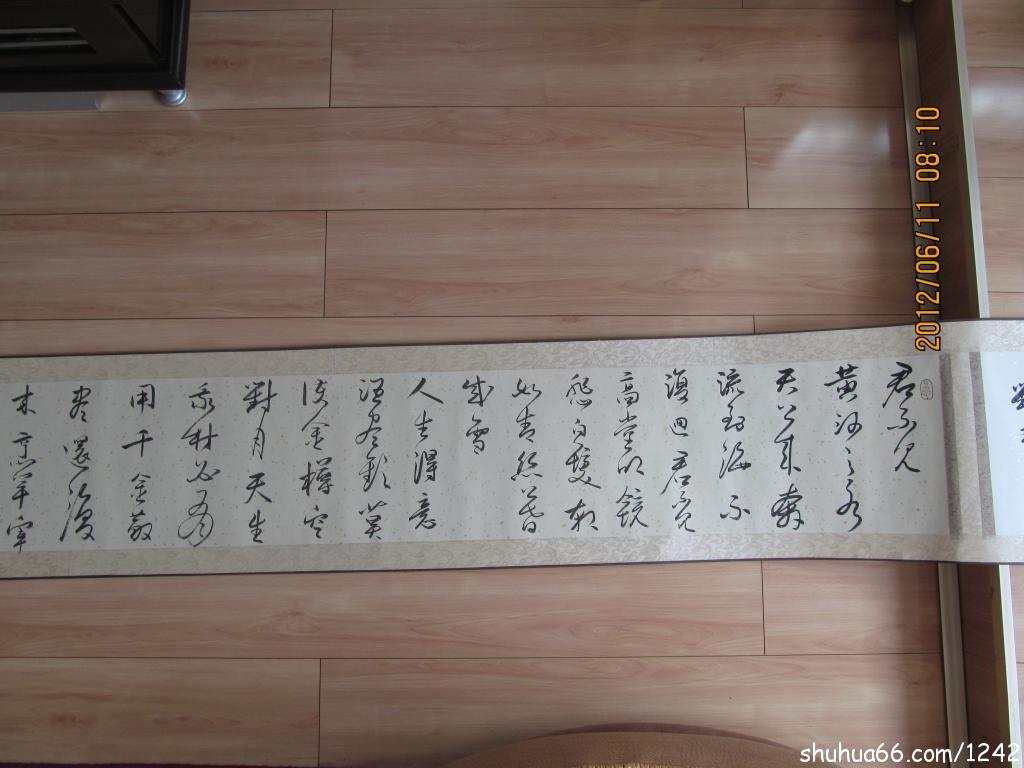 君不見
黃河之水
天上来奔
流到海不
復回君不見
高堂明鏡
悲白髮朝
如青絲暮
成雪
人生得意
須盡歡莫
使金樽空
對月天生
我材必有
用千金散
盡還復
来烹羊宰
2012/06/11 08:10
shuhua66.com/1242